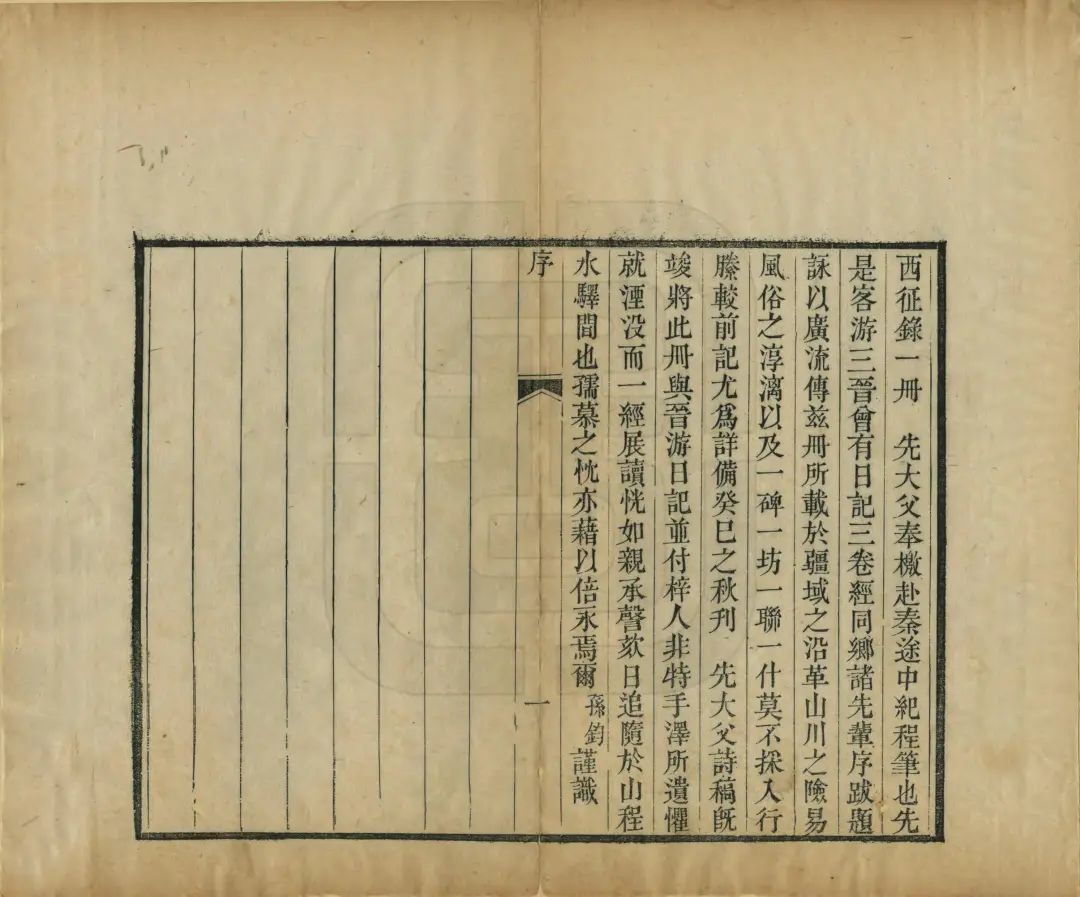 西征錄一冊　先大父奉檄赴秦途中紀程筆也先
是客游三晉曾有日記三卷經同鄉諸先輩序跋題
詠以廣流傳茲冊所載於疆域之沿革山川之險易
風俗之淳漓以及一碑一坊一聯一什莫不採入行
縢較前記尤爲詳備癸巳之秋刋　先大父詩稿旣
竣將此冊與晉游日記並付梓人非特手澤所遺懼
就湮没而一經展讀恍如親承謦欬日追隨於山程
水驛間也孺慕之忱亦藉以倍永焉爾　孫鈞謹識
序　一